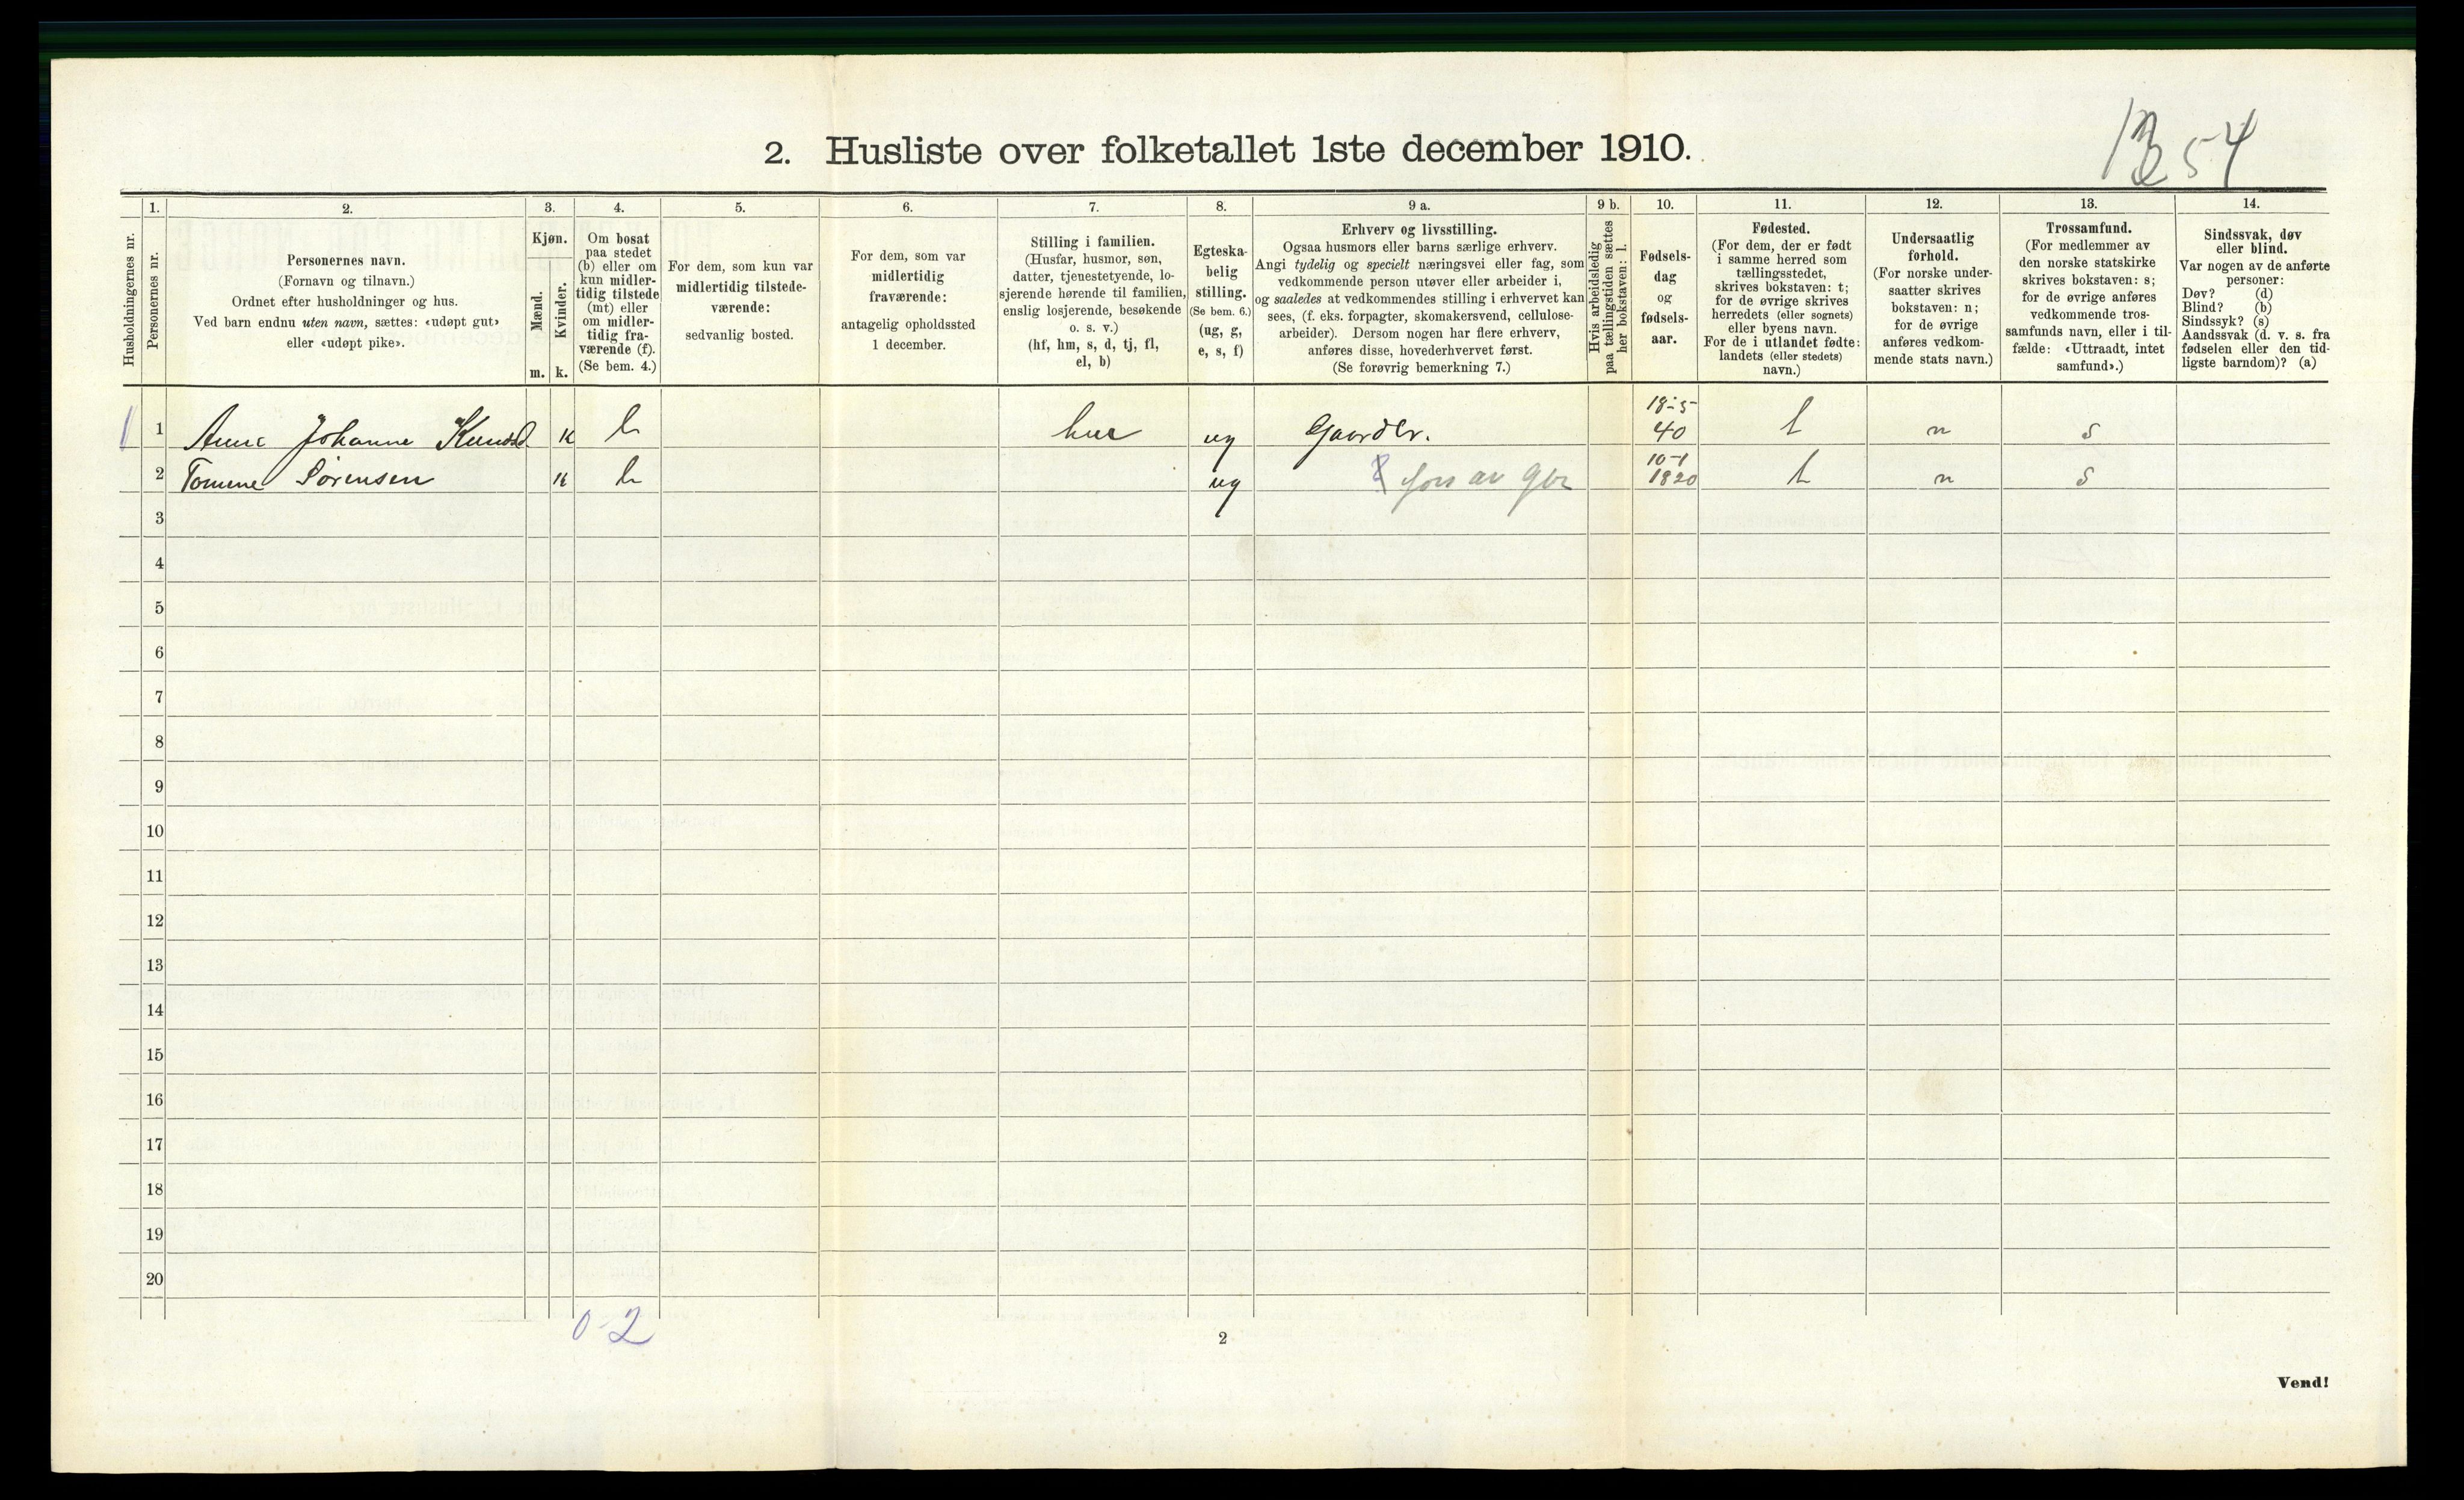 2. Husliste over folketallet 1ste december 1910.
54
Husholdningernes nr.
1.
Personernes nr.
2.
Personernes navn.
(Fornavn og tilnavn.)
Ordnet efter husholdninger og hus.
Ved barn endnu uten navn, sættes: «udøpt gut»
eller «udøpt pike».
3.
Kjøn.
Mænd.
Kvinder.
m. k.
4.
Om bosat
paa stedet
(b) eller om
kun midler-
tidig tilstede
(mt) eller
om midler-
tidig fra-
værende (f).
(Se bem. 4.)
5.
For dem, som kun var
midlertidig tilstede-
værende:
sedvanlig bosted.
6.
For dem, som var
midlertidig
fraværende:
antagelig opholdssted
1 december.
7.
Stilling i familien.
(Husfar, husmor, søn,
datter, tjenestetyende, lo-
sjerende hørende til familien,
enslig losjerende, besøkende
o. s. v.)
(hf, hm, s, d, tj, fl,
el, b)
8.
Egteska-
belig
stilling.
(Se bem. 6.)
(ug, g,
e, s, f)
9 a.
Erhverv og livsstilling.
Ogsaa husmors eller barns særlige erhverv.
Angi tydelig og specielt næringsvei eller fag, som
vedkommende person utøver eller arbeider i,
og saaledes at vedkommendes stilling i erhvervet kan
sees, (f. eks. forpagter, skomakersvend, cellulose-
arbeider). Dersom nogen har flere erhverv,
anføres disse, hovederhvervet først.
(Se forøvrig bemerkning 7.)
9 b.
Hvis arbeidsledig
paa tællingstiden sættes
her bokstaven: l.
10.
Fødsels-
dag
og
fødsels-
aar.
11.
Fødested.
(For dem, der er født
i samme herred som
tællingsstedet,
skrives bokstaven: t;
for de øvrige skrives
herredets (eller sognets)
eller byens navn.
For de i utlandet fødte:
landets (eller stedets)
navn.)
12.
Undersaatlig
forhold.
(For norske under-
saatter skrives
bokstaven: n;
for de øvrige
anføres vedkom-
mende stats navn.)
13.
Trossamfund.
(For medlemmer av
den norske statskirke
skrives bokstaven: s;
for de øvrige anføres
vedkommende tros-
samfunds navn, eller i til-
fælde: «Uttraadt, intet
samfund».)
14.
Sindssvak, døv
eller blind.
Var nogen av de anførte
personer:
Døv? (d)
Blind? (b)
Sindssyk? (s)
Aandssvak (d. v. s. fra
fødselen eller den tid-
ligste barndom)? (a)
1 1 Anne Johanne k b ug Gaardbr. 18-5-40 t n s
2 Tomine Sørensen k b ug fors av gbr 10-1 1820 t n s
3
4
5
6
7
8
9
10
11
12
13
14
15
16
17
18
19
20
0-2
2
Vend!